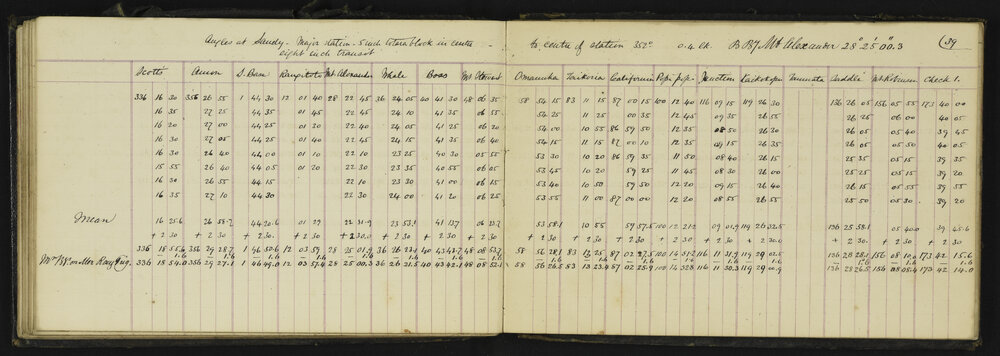 Angles at Sandy. Major station. 5 inch block in centre
eight inch transit
to centre of station 352° 0.4 lk. Mt Alexander 28° 25' 00".3 39
Scotts Amon S. Base Rangitoto Mt Alexander Whale Boss Mt Omanuha Taikoria California Pipi pipi Junction Puddle Mt Robinson Check 1.
336 16 30 356 26 55 1 44 30 12 01 40 28 22 45 36 24 05 40 41 30 48 06 35 58 54 15 83 11 15 87 00 15 100 12 40 116 09 15 119 26 30 136 26 05 156 05 55 173 40 00
16 35 27 25 44 35 01 45 22 45 24 10 41 35 06 55 54 25 11 25 00 35 12 45 09 35 26 55 26 25 06 00 40 05
16 20 27 00 44 25 01 30 22 40 24 05 41 25 06 20 54 00 10 55 86 59 50 12 35 08 50 26 30 26 00 05 40 39 45
16 30 27 05 44 25 01 40 22 45 24 15 41 35 06 40 54 15 11 15 87 00 10 12 35 09 15 26 35 26 05 05 50 40 05
16 30 26 40 44 00 01 10 22 10 23 25 40 30 05 55 53 30 10 20 86 59 35 11 50 08 40 26 15 25 35 05 15 39 35
15 55 26 40 44 05 01 20 22 30 23 35 40 55 06 05 53 45 10 20 59 25 11 45 08 30 26 20 25 55 05 15 39 20
16 30 26 55 44 15 22 10 23 30 41 00 06 15 53 40 10 50 59 50 12 20 09 15 26 40 26 15 05 55 39 55
16 35 27 10 44 30 22 30 24 00 41 20 06 25 53 55 11 00 87 00 00 12 20 08 55 26 55 25 50 05 30 39 20
Mean 16 25.6 26 58.7 44 20.6 01 29 22 31.9 23 53.1 41 13.7 06 23.7 53 58.1 10 55 59 57.5 100 12 21.2 09 01.9 119 26 32.5 136 25 58.1 05 40.0 39 45.6
+ 2 30 + 2 30 + 2 30 + 2 30 + 2 30.0 + 2 30 + 2 30 + 2 30 + 2 30 + 2 30 + 2 30 + 2 30 + 2 30 + 2 30 + 2 30 + 2 30 + 2 30
336 18 55.6 356 29 28.7 1 46 50.6 12 03 59 28 25 01.9 36 26 23.1 40 43 43.7 48 08 53.7 58 56 28.1 83 13 25 87 02 27.5 116 11 31.9 119 29 02.5 136 28 28.1 156 08 10.0 173 42 15.6
1.6 1.6 1.6 1.6 1.6 1.6 1.6 1.6 1.6 1.6 1.6 1.6 1.6 1.6 1.6 1.6
336 18 54.0 356 29 27.1 1 46 49.0 12 03 57.4 28 25 00.3 36 26 40 43 42.1 48 08 52.1 58 56 26.5 83 13 23.4 87 02 25.9 116 11 30.3 119 29 00.9 136 28 26.5 156 08 08.4 173 42 14.0